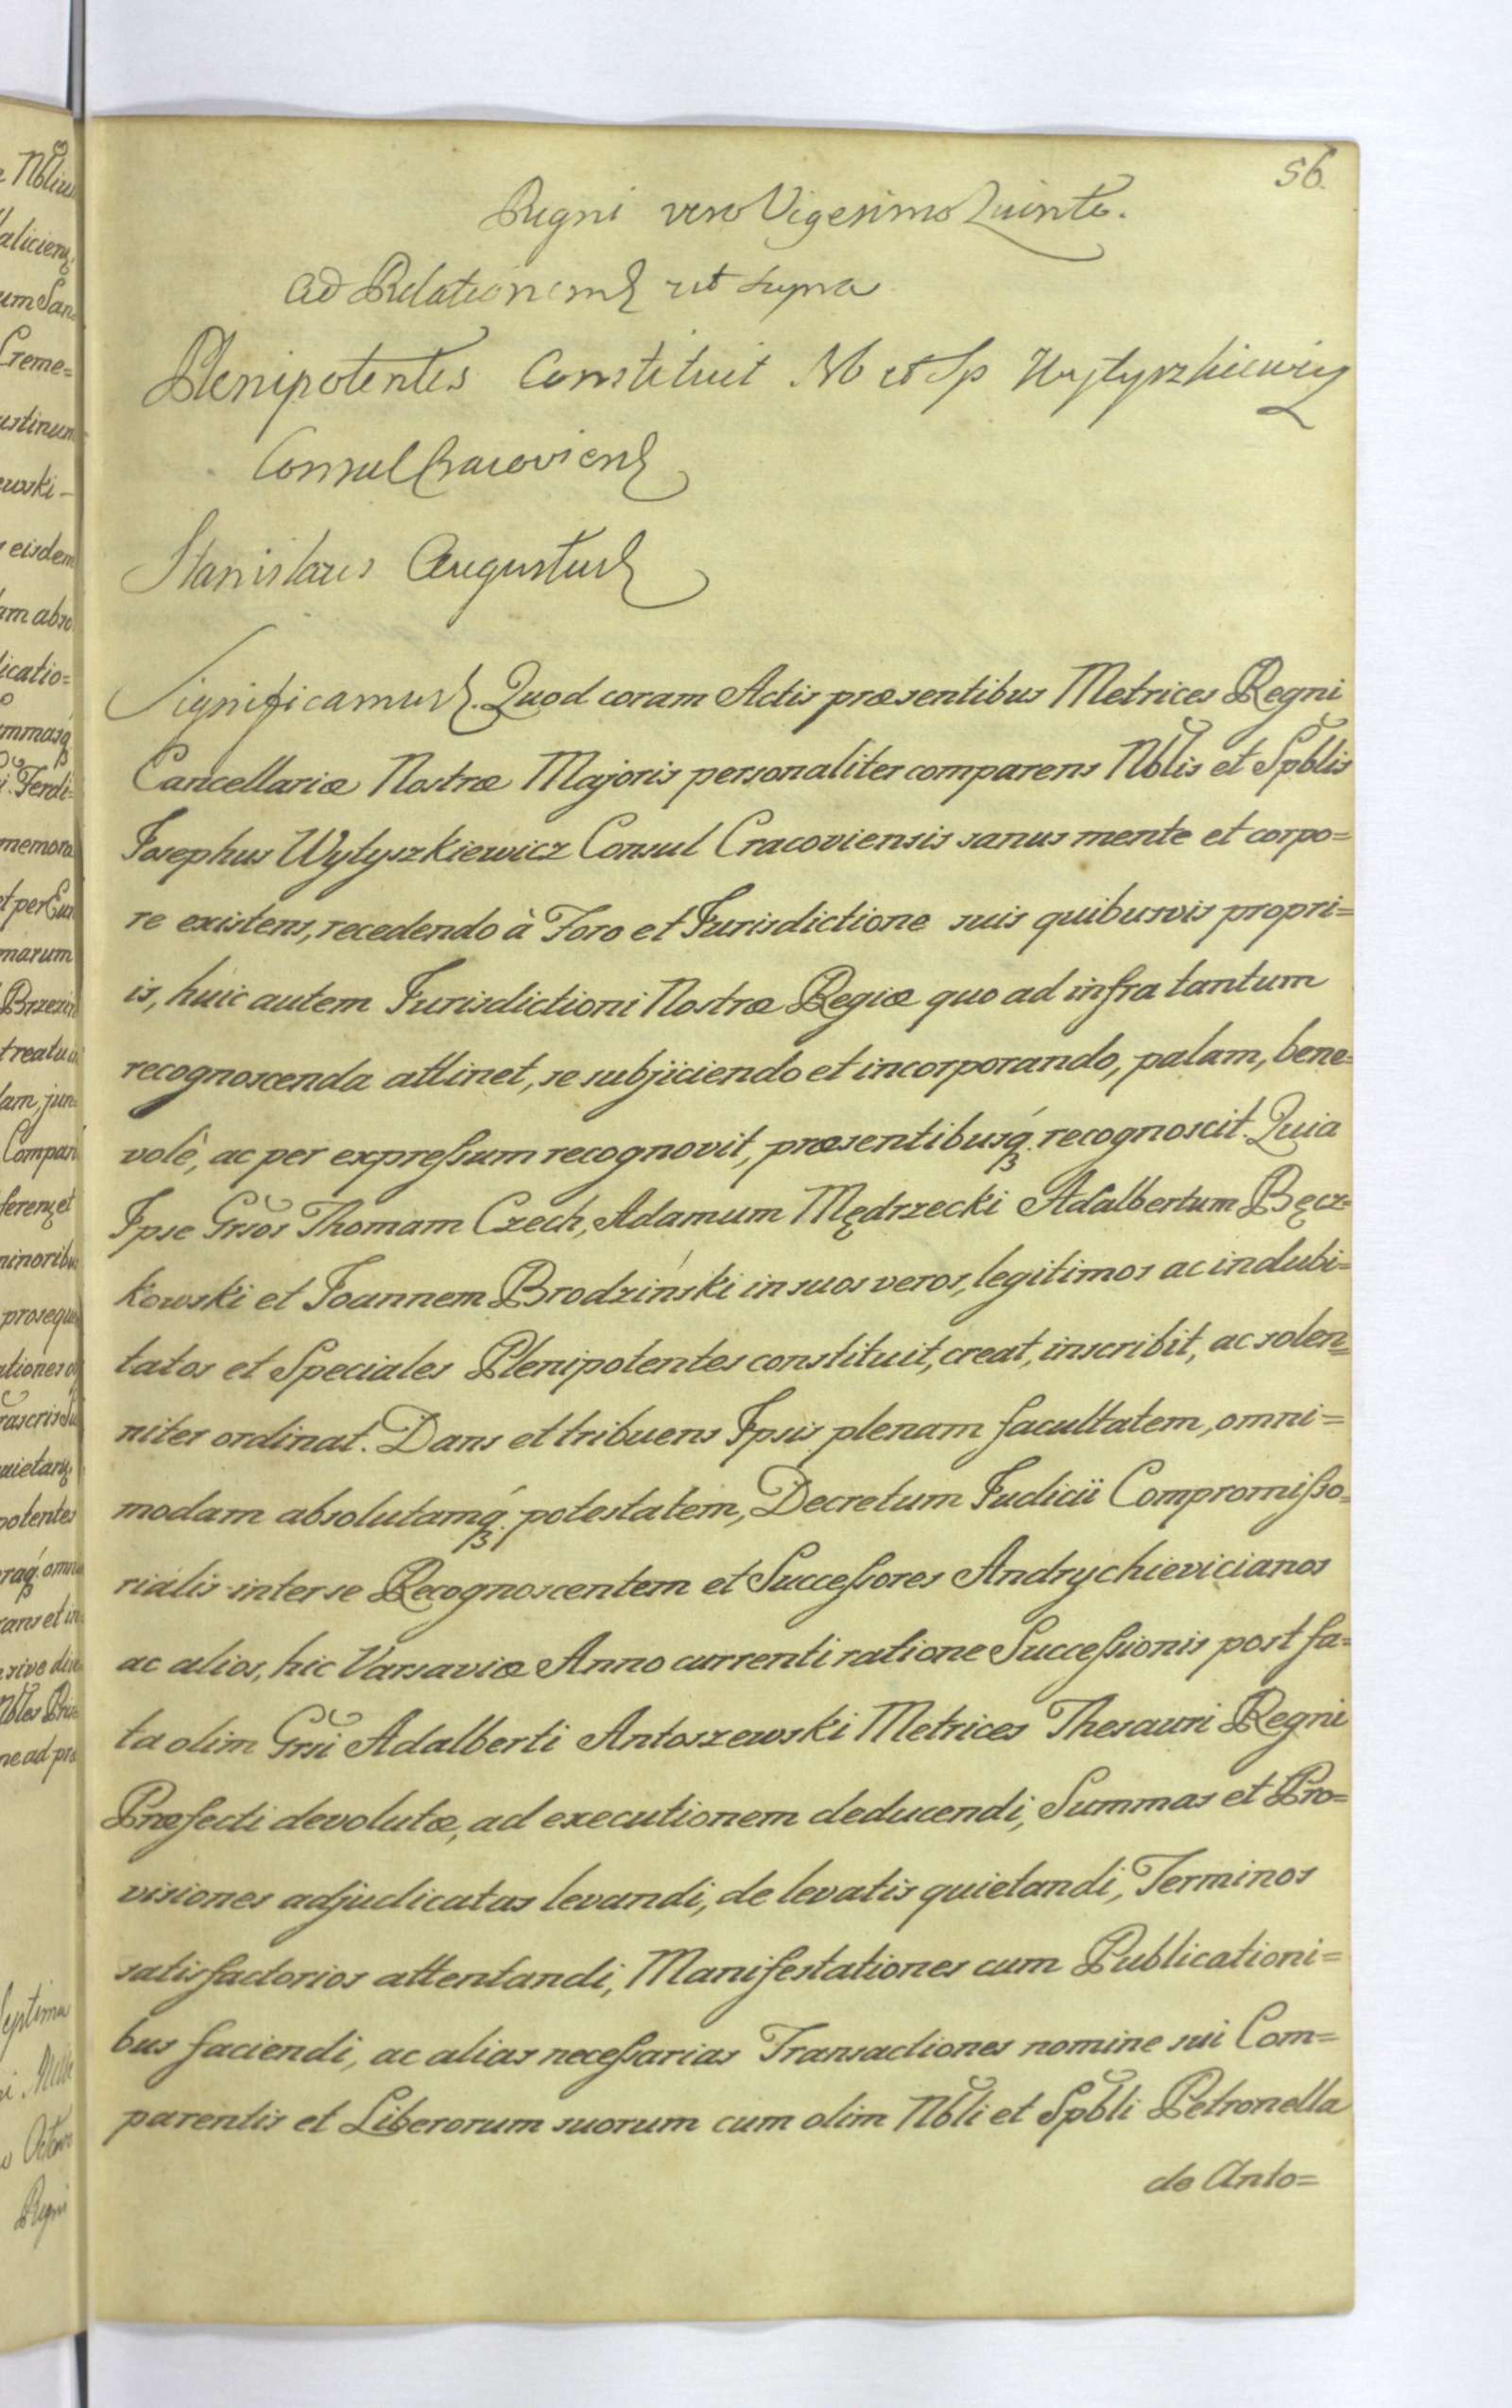 56.
Regni vero Vigesimo Quinto.
Ad Relationem ut supra
Plenipotentes Constituit Nb et Sp Wytyszkiewicz
Consul Cracovien
Stanislaus Augustus
Significamus. Quod coram Actis præsentibus Metrices Regni
Cancellariæ Nostræ Majoris personaliter comparens Nblis et Spblis
Josephus Wytyszkiewicz Consul Cracoviensis sanus mente et corpo=
re existens, recedendo à Foro et Jurisdictione suis quibusvis propri=
is, huic autem Jurisdictioni Nostræ Regiæ quo ad infra tantum
recognoscenda attinet, se subjiciendo et incorporando, palam, bene=
volè, ac per expreſsum recognovit, præsentibusq́ recognoscit. Quia
Ipse Grsos Thomam Czech, Adamum Mędrzecki Adalbertum Bęcz=
kowski et Joannem Brodziński in suos veros, legitimos ac indubi=
tatos et Speciales Plenipotentes constituit, creat, inscribit, ac solen=
niter ordinat. Dans et tribuens Ipsis plenam facultatem, omni=
modam absolutamq́ potestatem, Decretum Judicii Compromiſso=
rialis inter se Recognoscentem et Succeſsores Andrychievicianos
ac alios, hic Varsaviæ Anno currenti ratione Succeſsionis post fa=
ta olim Grsi Adalberti Antoszewski Metrices Thesauri Regni
Præfecti devolutæ, ad executionem deducendi, Summas et Pro=
visiones adjudicatas levandi, de levatis quietandi, Terminos
satisfactorios attentandi, Manifestationes cum Publicationi=
bus faciendi, ac alias neceſsarias Transactiones nomine sui Com=
parentis et Liberorum suorum cum olim Nbli et Spbli Petronella
de Anto=